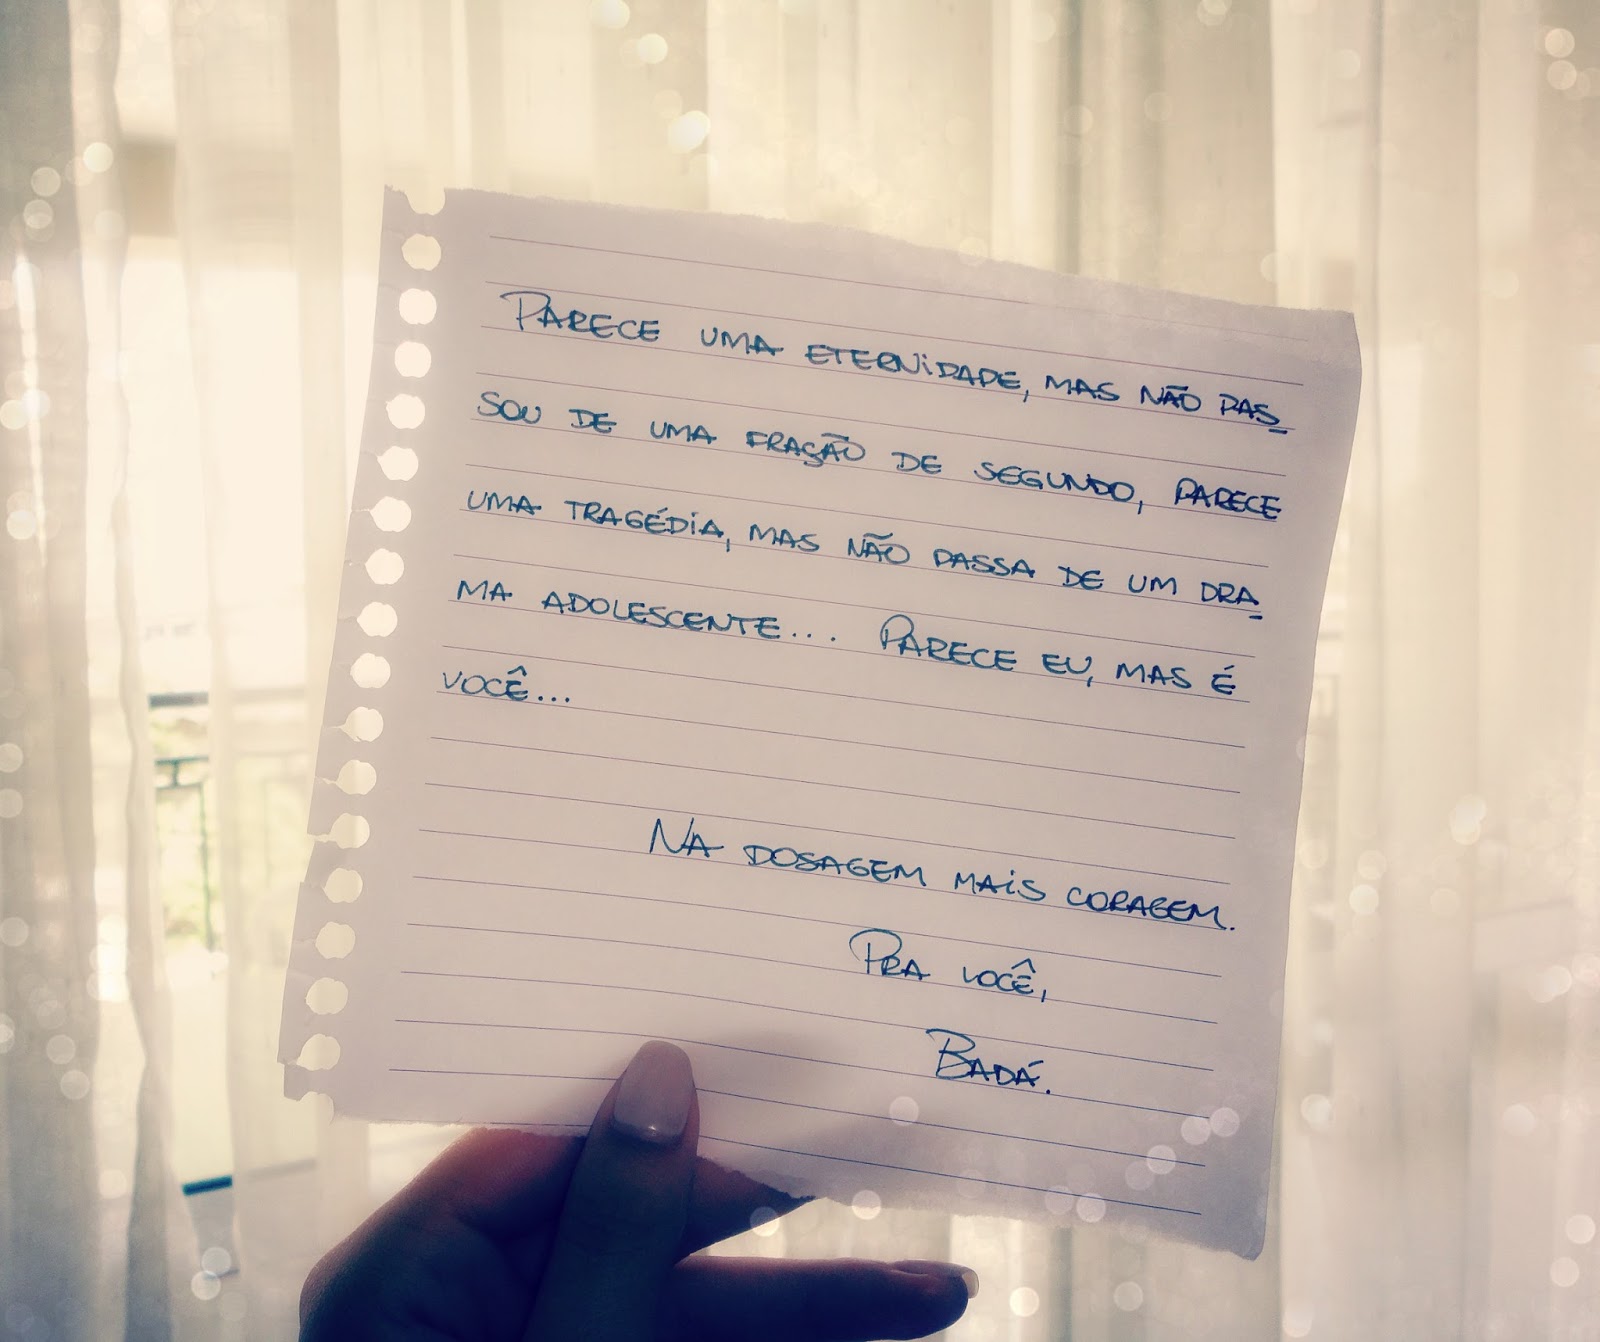 PARECE UMA ETERNIDADE, MAS NÃO PAS_
SOU DE UMA FRAÇÃO DE SEGUNDO, PARECE
UMA TRAGÉDIA, MAS NÃO PASSA DE UM DRA_
MA ADOLESCENTE... PARECE EU, MAS É
VOCÊ...
NA DOSAGEM MAIS CORAGEM.
PRA VOCÊ,
BADÁ.